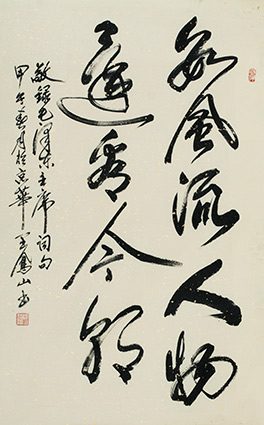 数风流人物
还看今朝
敬录毛泽东主席词句
甲午春月于京华
凤山书